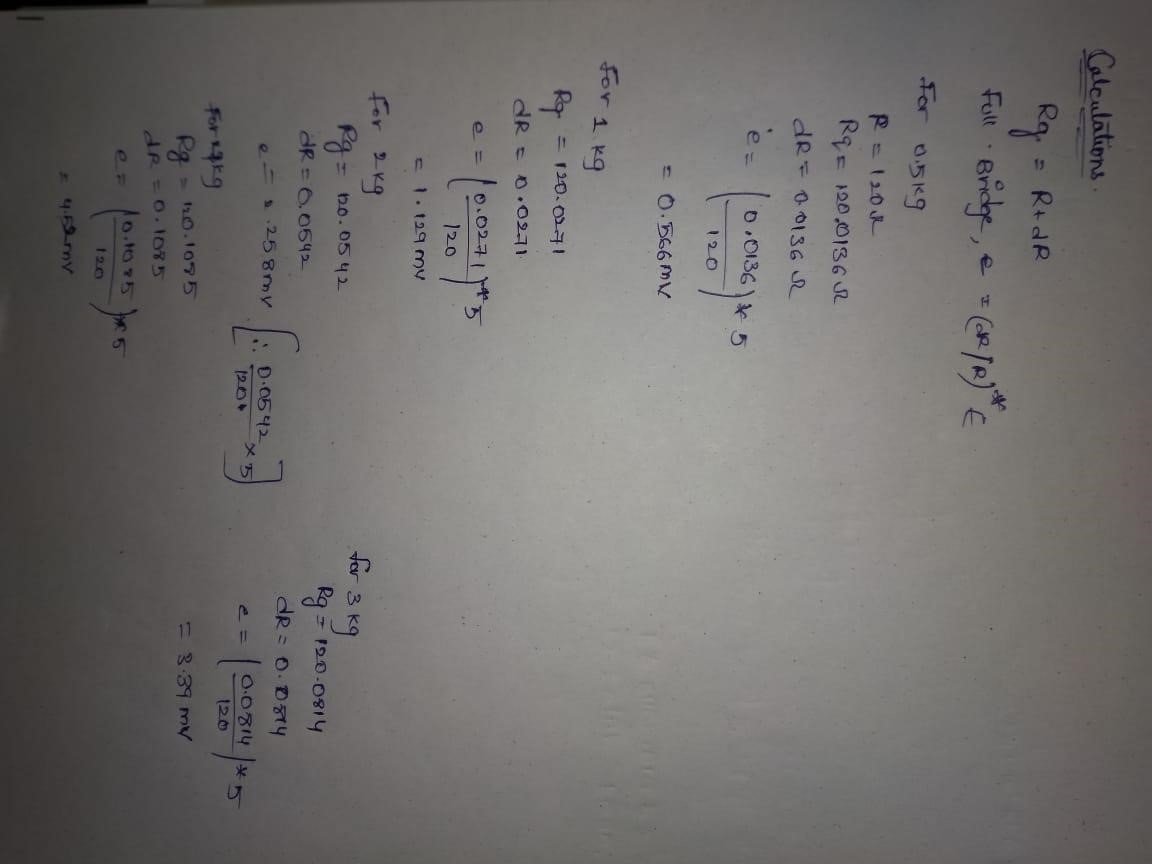 Calculations.
Rg = R+dR
Full Bridge, e = (dR/R)* E
For 0.5kg
R = 120Ω
Rg = 120.0136Ω
dR = 0.0136Ω
e = (0.0136/120)* 5
= 0.566mv
For 1 kg
Rg = 120.0271
dR = 0.0271
e = (0.0271/120)* 5
= 1.129mv
For 2kg
Rg = 120.0542
dR = 0.0542
e = 2.258mv [∴ 0.0542/120 × 5]
For 4kg
Rg = 120.1085
dR = 0.1085
e = (0.1085/120)* 5
= 4.52mv
for 3kg
Rg = 120.0814
dR = 0.0814
e = (0.0814/120)* 5
= 3.39 mv